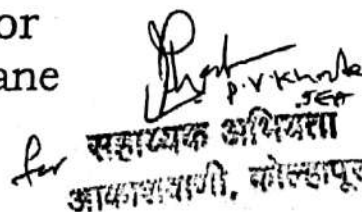 or
ane
P.V. Khade
JEA
for सहाय्यक अभियंता
आकाशवाणी, कोल्हापूर